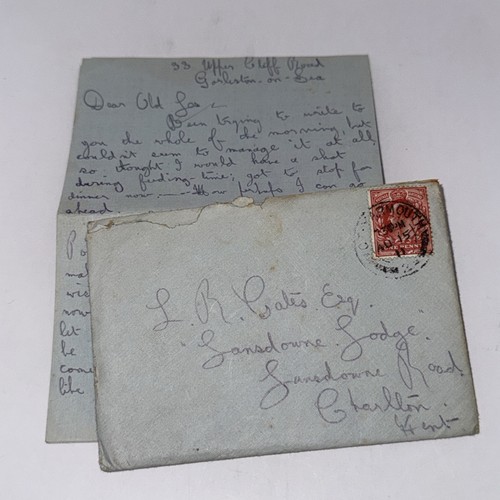 33 Upper Cliff Road
Gorleston-on-Sea
Dear Old Las
Been trying to write to
you the whole of the morning, but
couldn't seem to manage it at all,
so thought I would have a shot
during feeding-time; got to stop for
dinner now — Now perhaps I can go
ahead.
now
let
be
come
like
YARMOUTH
L. R. Oates Esq.
"Lansdowne Lodge"
Lansdowne Road
Charlton.
Kent